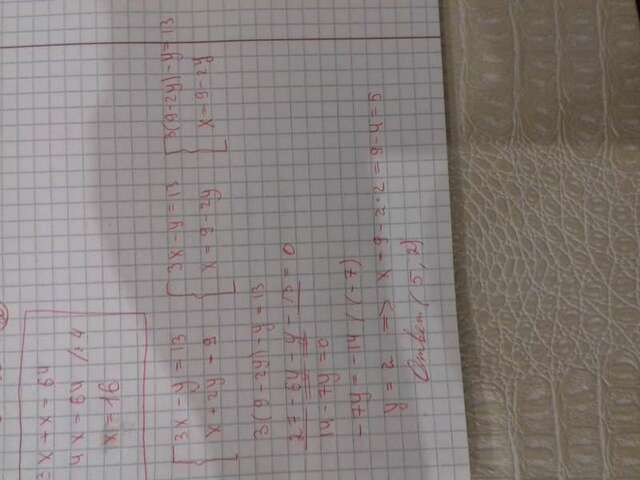 3x + x = 64
4x = 64 /:4
x = 16
3x - y = 13 3x - y = 13 3(9-2y) - y = 13
x + 2y = 9 x = 9 - 2y x = 9 - 2y
3(9 - 2y) - y = 13
27 - 6y - y - 13 = 0
14 - 7y = 0
-7y = -14 / (-7)
y = 2 => x = 9 - 2·2 = 9 - 4 = 5
Ответ (5, 2)